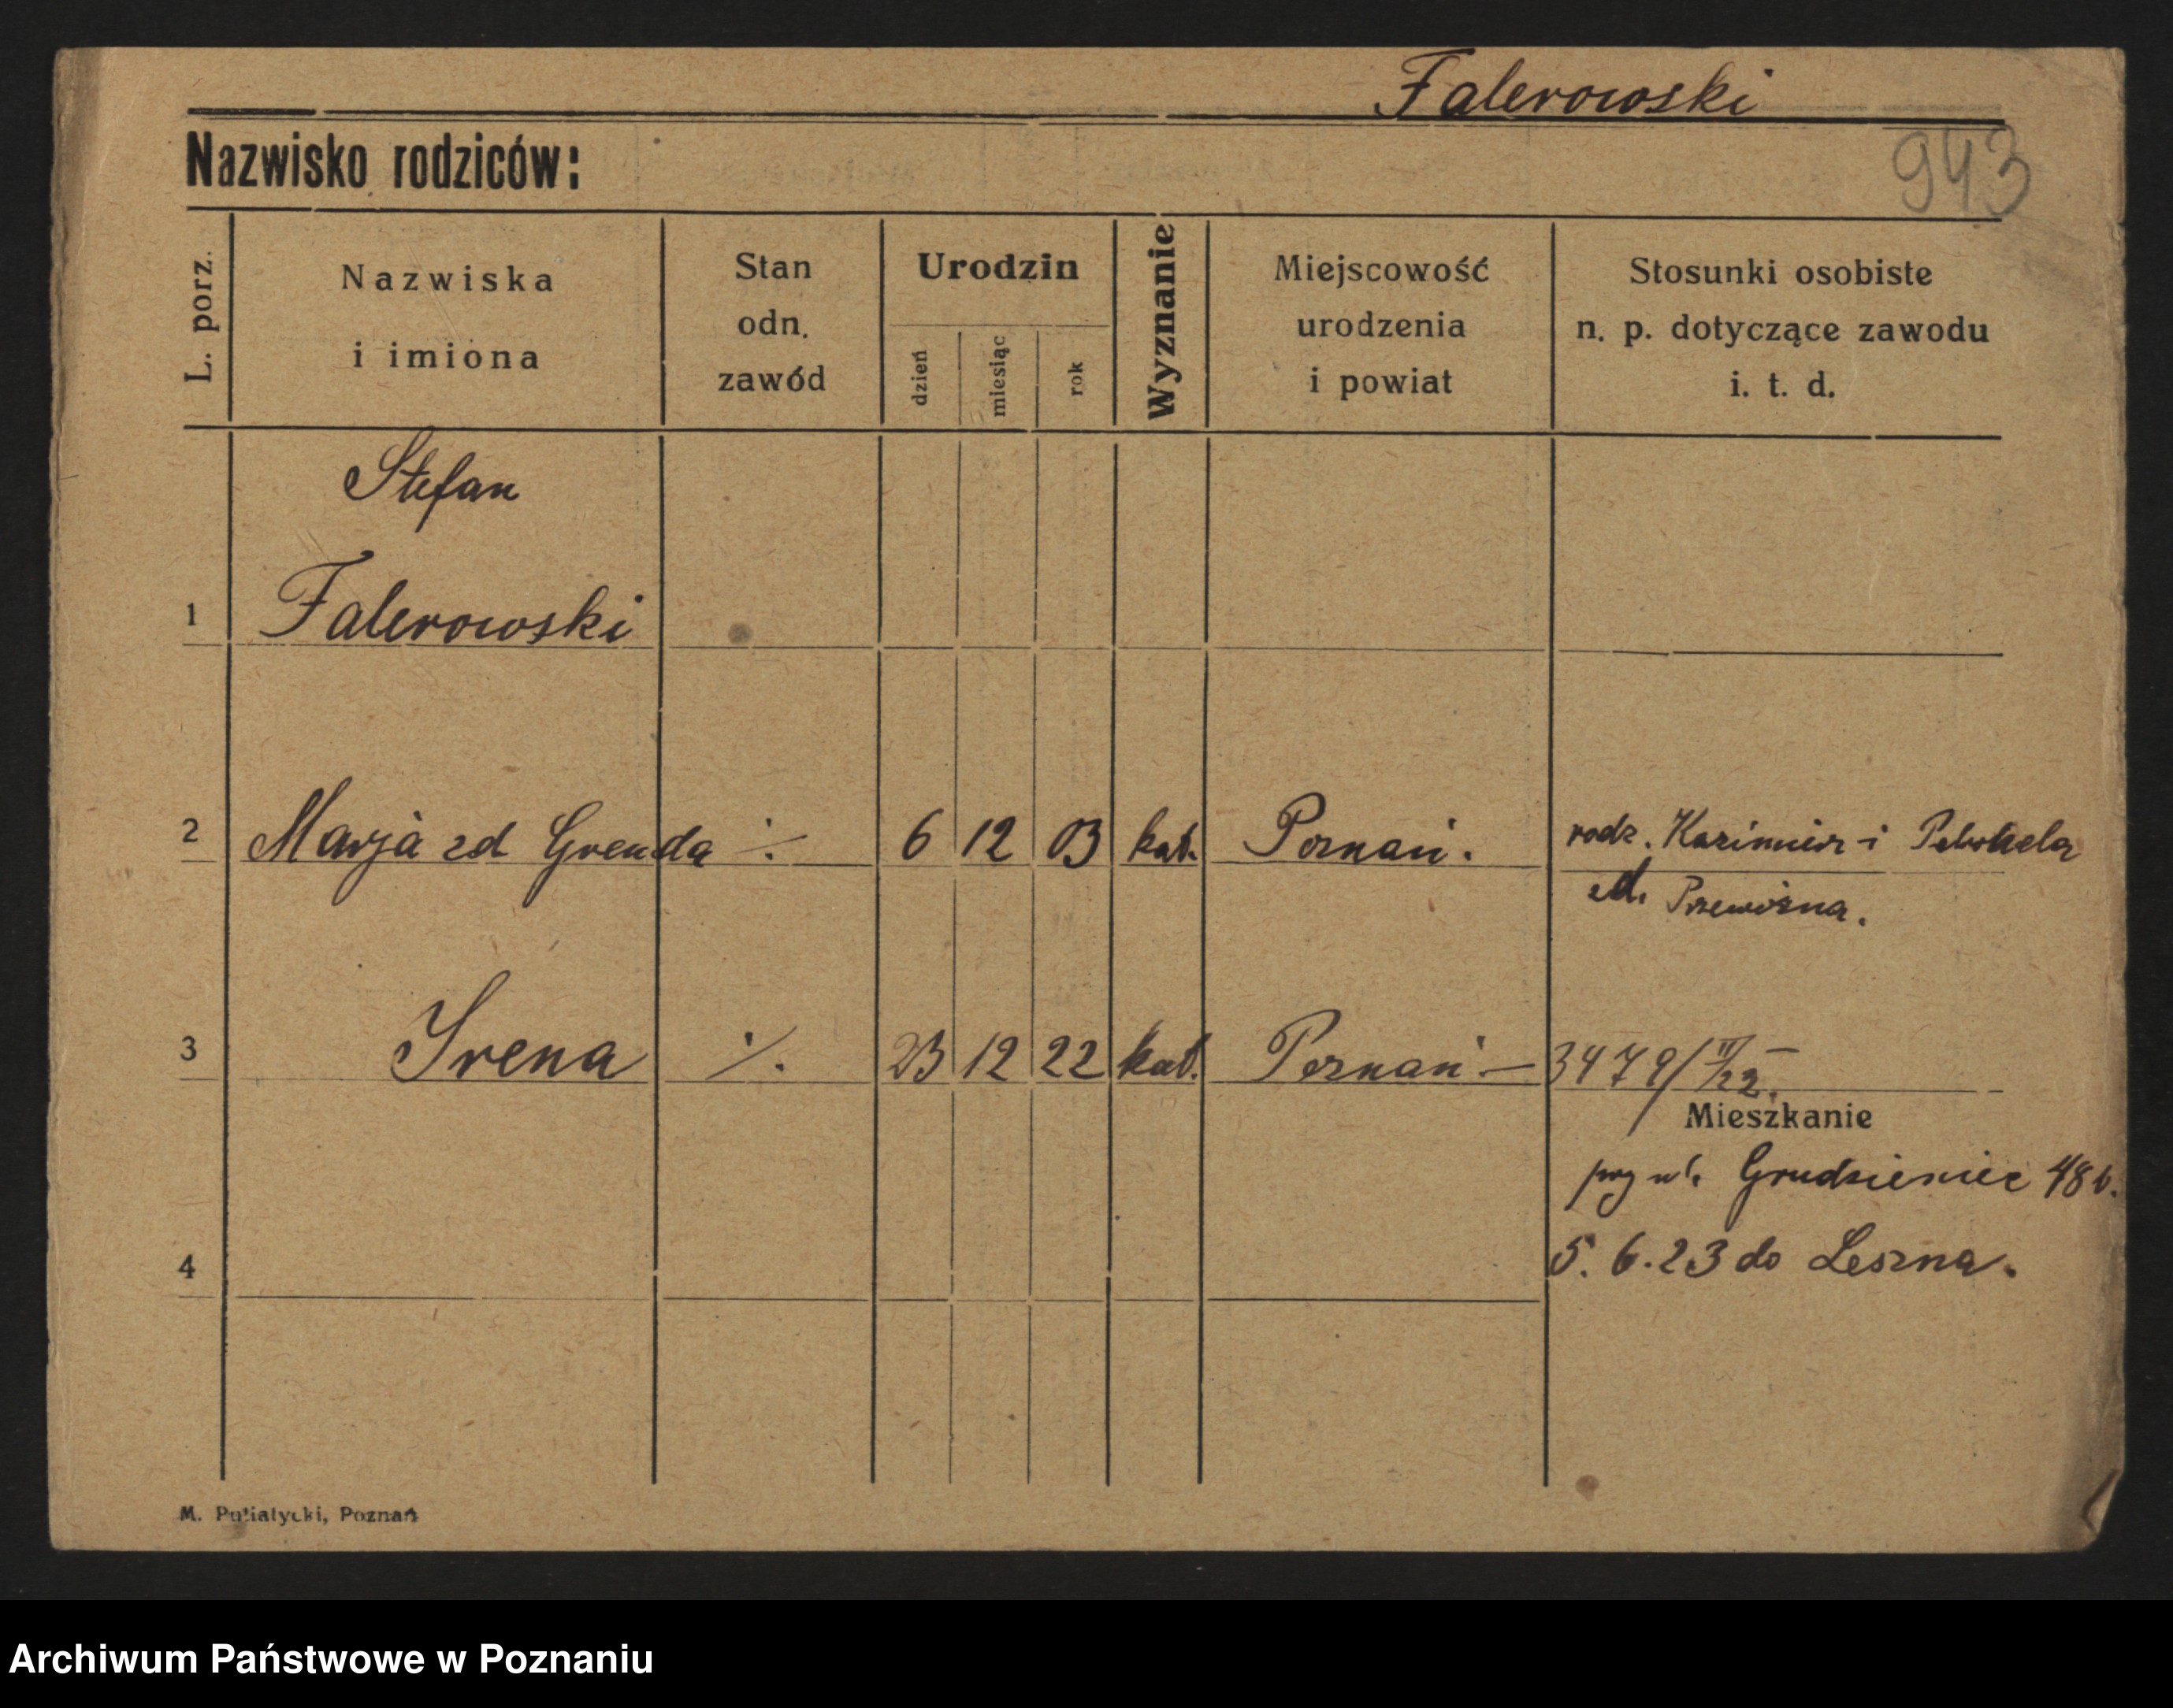 Falerowski
Nazwisko rodziców:
943
L. porz.
Nazwiska
i imiona
Stan
odn.
zawód
Urodzin
dzień
miesiąc
rok
Wyznanie
Miejscowość
urodzenia
i powiat
Stosunki osobiste
n. p. dotyczące zawodu
i. t. d.
Stefan
1 Falerowski
2 Marja zd Grenda ·/. 6 12 03 kat. Poznań. rodz. Kazimierz i
zd. Przewoźna.
3 Irena ·/. 23 12 22 kat. Poznań.— 3479/22.
Mieszkanie
Grudzieniec 48b.
4 5.6.23 do Leszna.
M. Putiatycki, Poznań
Archiwum Państwowe w Poznaniu